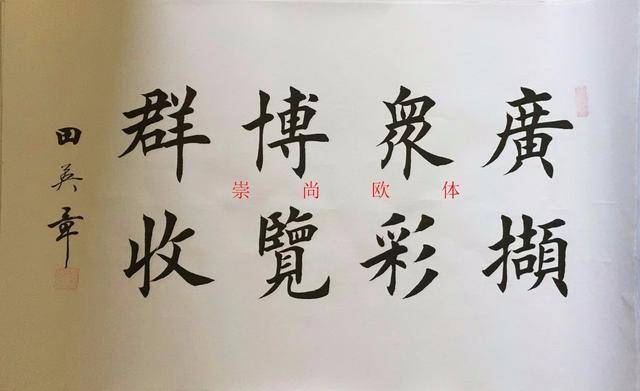 廣擷
衆彩
博覽
群收
田英章
崇尚欧体